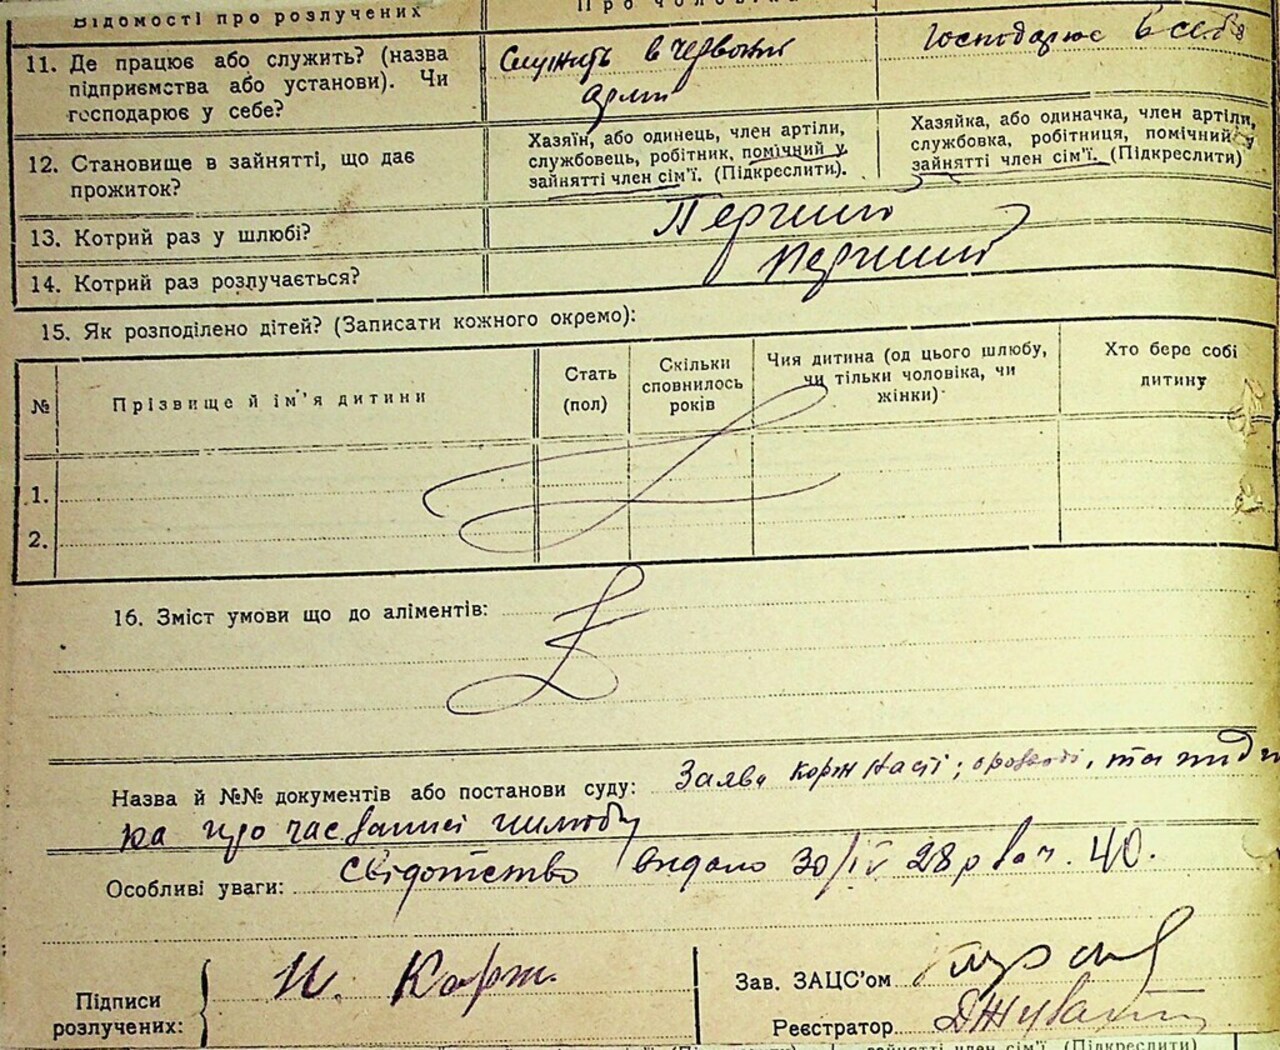 Відомості про розлучених
Про чоловіка
11. Де працює або служить? (назва
підприємства або установи). Чи
господарює у себе?
Служить в червоній
армії
Господарює в себе
12. Становище в зайнятті, що дає
прожиток?
Хазяїн, або одинець, член артіли,
службовець, робітник, помічний у
зайнятті член сім'ї. (Підкреслити).
Хазяйка, або одиначка, член артіли,
службовка, робітниця, помічний у
зайнятті член сім'ї. (Підкреслити)
13. Котрий раз у шлюбі?
Перший
14. Котрий раз розлучається?
перший
15. Як розподілено дітей? (Записати кожного окремо):
№
Прізвище й ім'я дитини
Стать
(пол)
Скільки
сповнилось
років
Чия дитина (од цього шлюбу,
чи тільки чоловіка, чи
жінки)
Хто бере собі
дитину
1.
2.
16. Зміст умови що до аліментів:
Назва й №№ документів або постанови суду: Заява Корж Насті; о розводі, та
ка про час запису шлюбу
Особливі уваги: Свідотство видано 30/IV 28 р за ч. 40.
Підписи
розлучених:
Н. Корж.
Зав. ЗАЦС'ом
Реєстратор
зайнятті член сім'ї. (Підкреслити)